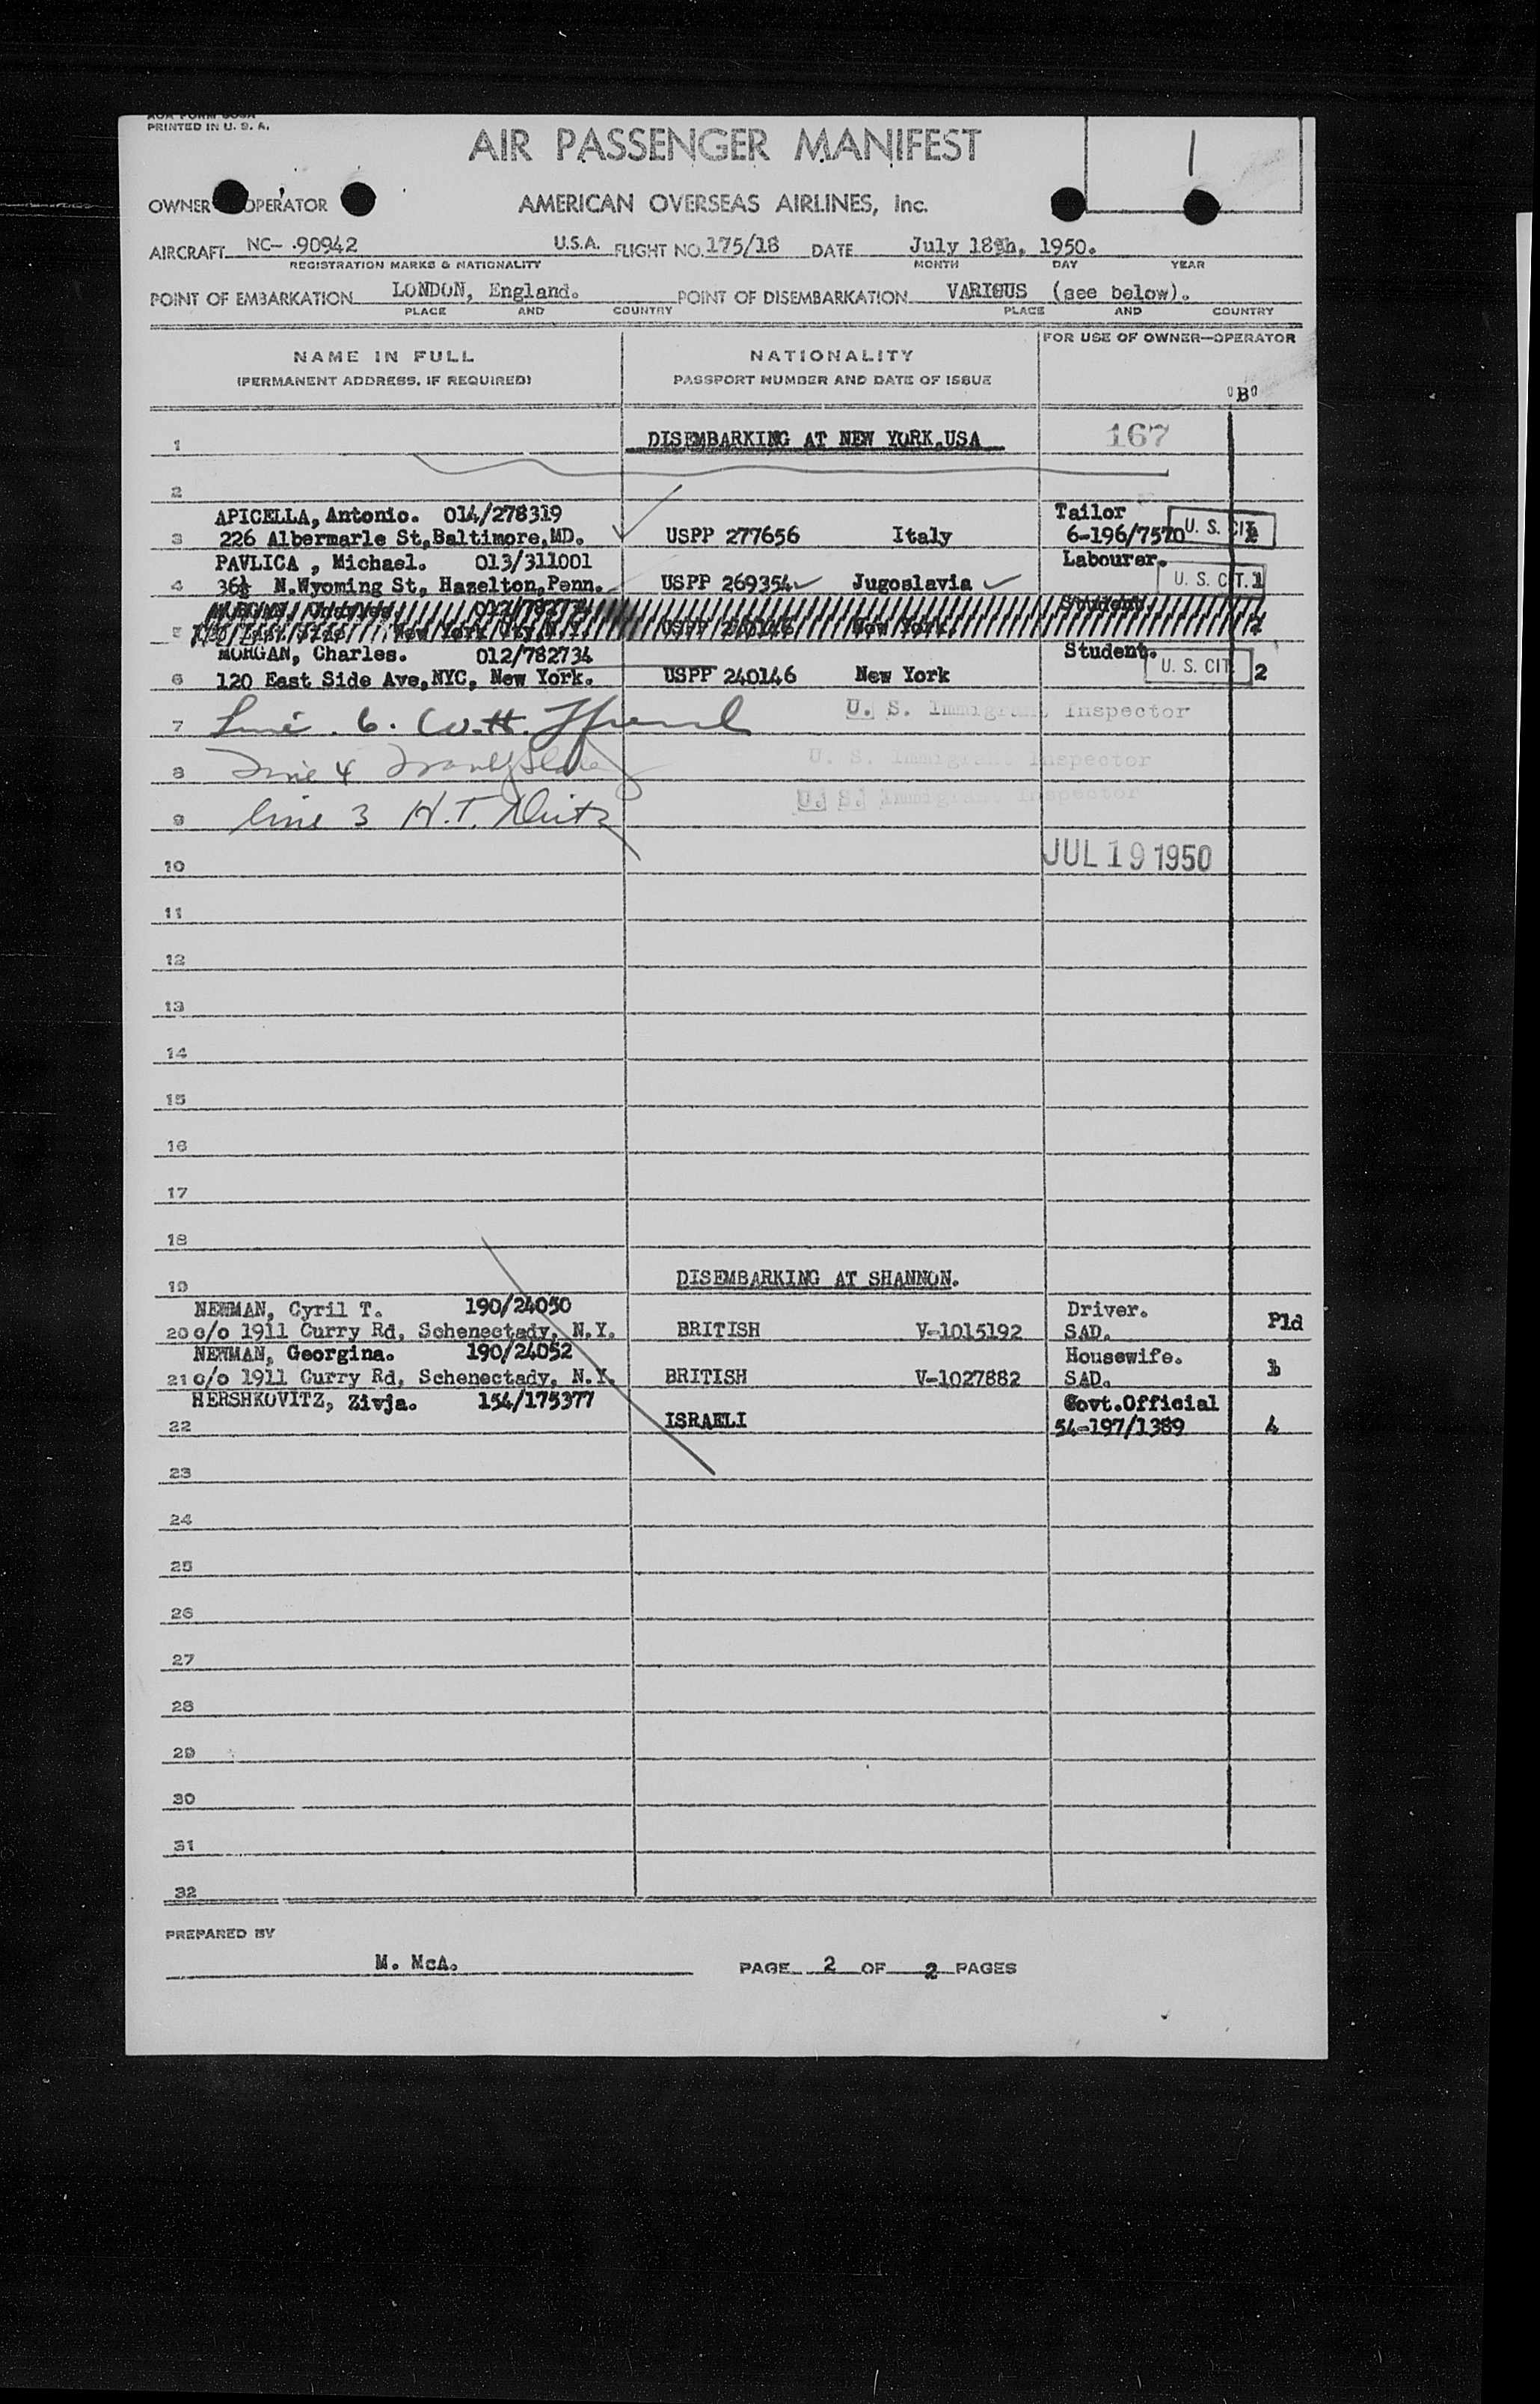 PRINTED IN U. S. A.
AIR PASSENGER MANIFEST
1
OWNER OPERATOR
AMERICAN OVERSEAS AIRLINES, Inc.
AIRCRAFT NC- 90942 U.S.A. FLIGHT NO. 175/18 DATE July 18th, 1950.
REGISTRATION MARKS & NATIONALITY MONTH DAY YEAR
POINT OF EMBARKATION LONDON, England. POINT OF DISEMBARKATION VARIOUS (see below).
PLACE AND COUNTRY PLACE AND COUNTRY
NAME IN FULL NATIONALITY FOR USE OF OWNER-OPERATOR
(PERMANENT ADDRESS, IF REQUIRED) PASSPORT NUMBER AND DATE OF ISSUE
"B"
1 DISEMBARKING AT NEW YORK,USA 167
2
APICELLA, Antonio. 014/278319 Tailor
3 226 Albermarle St,Baltimore,MD. USPP 277656 Italy 6-196/7570 U. S. CIT.
PAVLICA , Michael. 013/311001 Labourer.
4 36½ N.Wyoming St, Hazelton,Penn. USPP 269354 Jugoslavia U. S. CIT. 1
012/782734 Student
5 New York USPP 240146 New York 2
MORGAN, Charles. 012/782734 Student.
6 120 East Side Ave,NYC, New York. USPP 240146 New York U. S. CIT 2
7 Line 6. W.H. U. S. Immigrant Inspector
8 Line 4 U. S. Immigrant Inspector
9 line 3 H.T. U. S. Immigrant Inspector
10 JUL 19 1950
11
12
13
14
15
16
17
18
19 DISEMBARKING AT SHANNON.
NEWMAN, Cyril T. 190/24050 Driver.
20 c/o 1911 Curry Rd, Schenectady, N.Y. BRITISH V-1015192 SAD. Pld
NEWMAN, Georgina. 190/24052 Housewife.
21 c/o 1911 Curry Rd, Schenectady, N.Y. BRITISH V-1027882 SAD. 1
HERSHKOVITZ, Zivja. 154/175377 Govt.Official
22 ISRAELI 54-197/1389 4
23
24
25
26
27
28
29
30
31
32
PREPARED BY
M. McA. PAGE 2 OF 2 PAGES